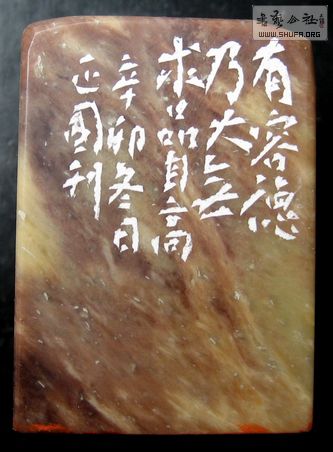 書藝公社
WWW.SHUFA.ORG
有容德
乃大无
求品自高
辛卯冬日
正國刊